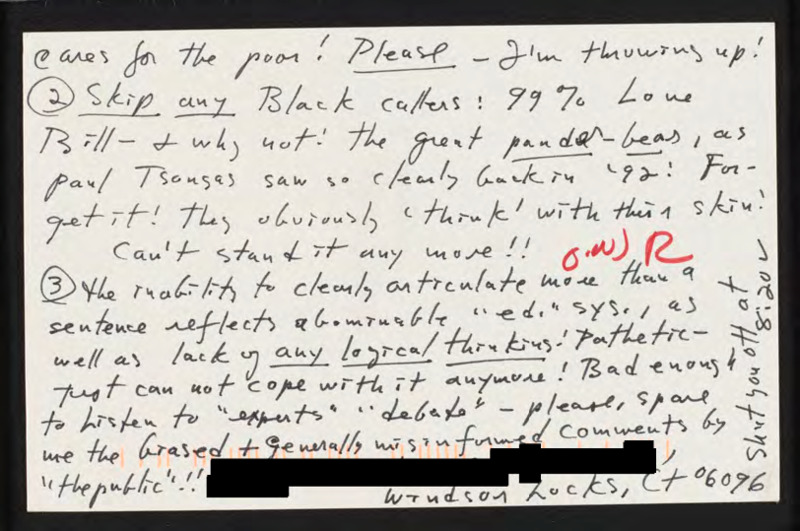 cares for the poor! Please - I'm throwing up!
② Skip any Black callers: 99% Love
Bill - & why not! the great panda-bear, as
Paul Tsongas saw so clearly back in '92! For-
get it! They obviously 'think' with their skin!
Can't stand it any more!!
R
③ the inability to clearly articulate more than a
sentence reflects abominable "ed." sys., as
well as lack of any logical thinking! Pathetic -
just can not cope with it anymore! Bad enough
to listen to "experts" "debate" - please, spare
me the biased & generally misinformed comments by
"the public"!!
Windsor Locks, Ct 06096
Shut you off at
8:20